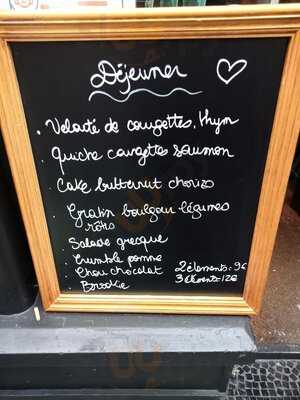 Déjeuner
. Velouté de courgettes, thym
. Quiche courgettes saumon
. Cake butternut chorizo
. Gratin boulgour légumes
rôtis
. Salade grecque
. Crumble pomme
. Chou chocolat 2 élements : 9€
. Brookie 3 élements : 12€